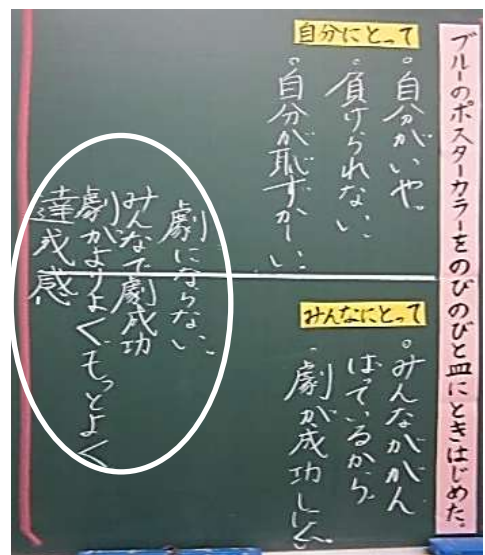 ブルーのポスターカラーをのびのびと皿にときはじめた。
自分にとって
。自分がいや。
。負けられない、
。自分が恥ずかしい、
みんなにとって
。みんながん
ばっているから
・劇が成功しない。
劇にならない、
みんなで劇成功
劇がよりよく、もっとよく
達成感